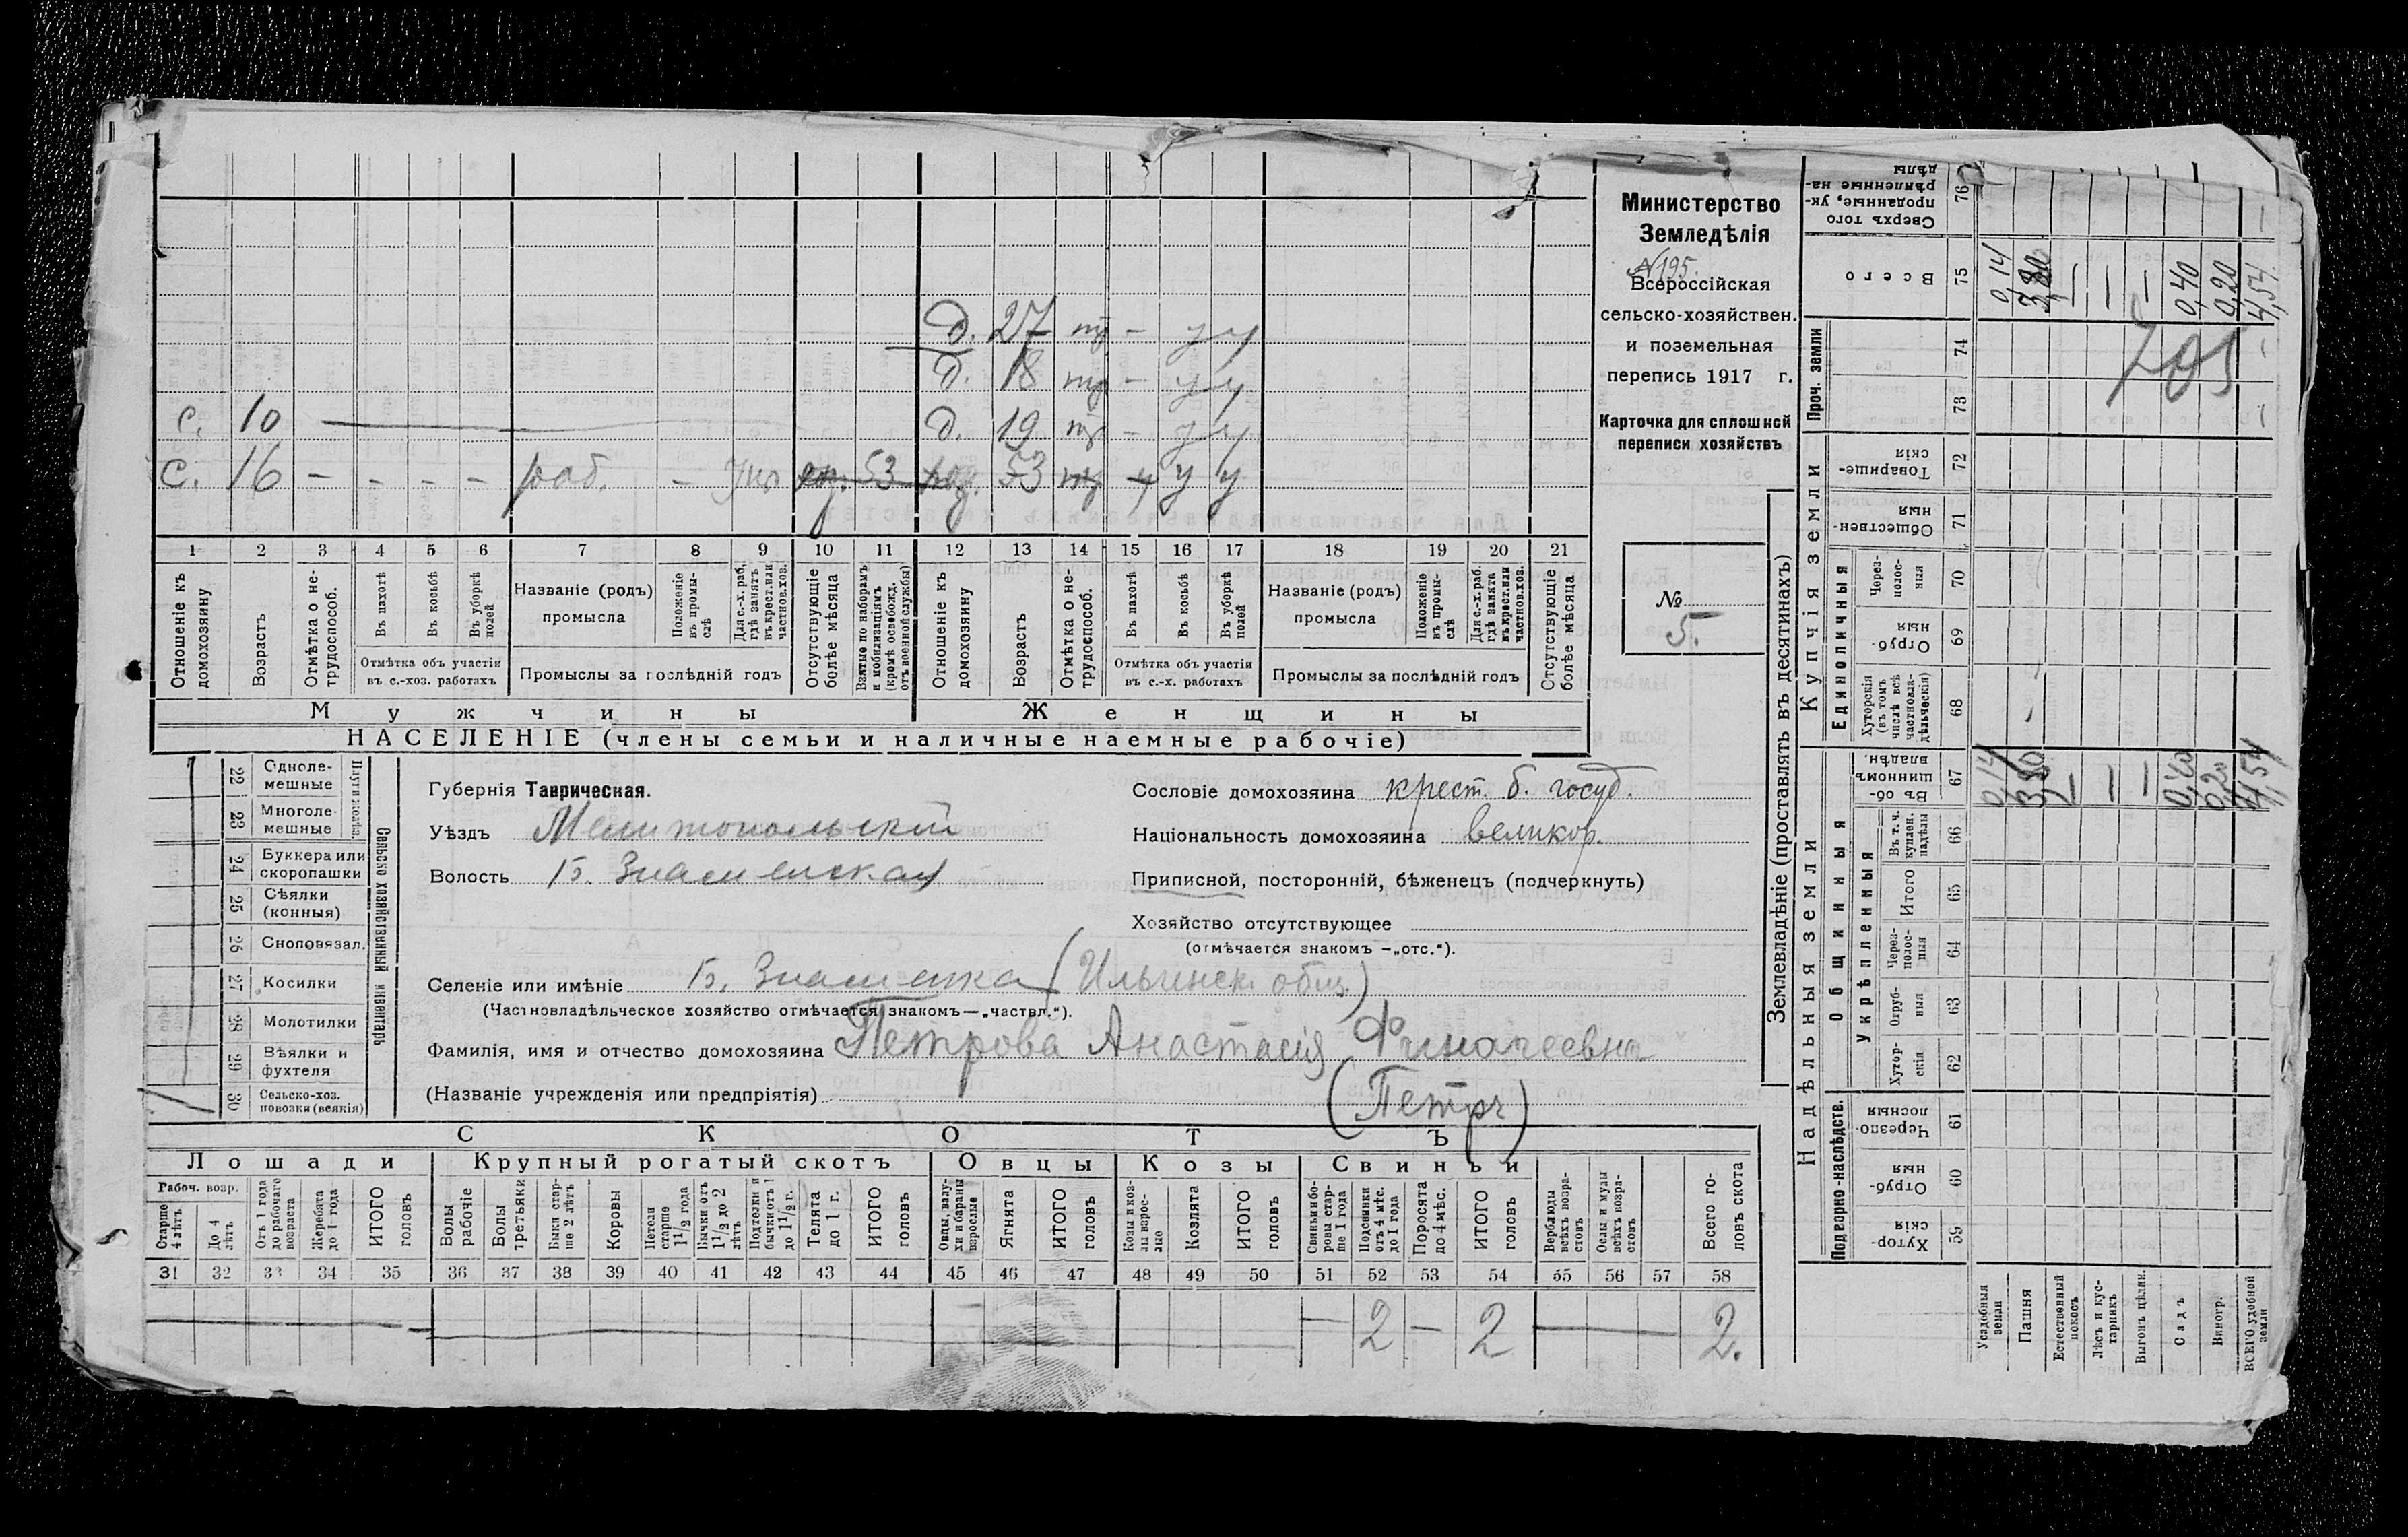 Министерство
Земледѣлія
N195.
Всероссійская
сельско-хозяйствен.
и поземельная
перепись 1917 г.
Карточка для сплошной
переписи хозяйствъ
№
5.
д. 27 – у у
д. 18 – у у
с. 10 д. 19 – у у
с. 16 – – – – раб. – 53 53 у у
1 2 3 4 5 6 7 8 9 10 11 12 13 14 15 16 17 18 19 20 21
Отношеніе къ домохозяину
Возрастъ
Отмѣтка о не-трудоспособ.
Въ пахотѣ
Въ косьбѣ
Въ уборкѣ полей
Отмѣтка объ участіи
въ с.-хоз. работахъ
Названіе (родъ)
промысла
Положеніе въ промы-слѣ
Для с.-х. раб. гдѣ занятъ въ крест. или частнов. хоз.
Промыслы за послѣдній годъ
Отсутствующіе болѣе мѣсяца
Взятые по наборамъ и мобилизаціямъ (кромѣ освобожд. отъ военной службы)
Отношеніе къ домохозяину
Возрастъ
Отмѣтка о не-трудоспособ.
Въ пахотѣ
Въ косьбѣ
Въ уборкѣ полей
Отмѣтка объ участіи
въ с.-х. работахъ
Названіе (родъ)
промысла
Положеніе въ промы-слѣ
Для с.-х. раб. гдѣ занята въ крест. или частнов. хоз.
Промыслы за послѣдній годъ
Отсутствующіе болѣе мѣсяца
Мужчины Женщины
НАСЕЛЕНІЕ (члены семьи и наличные наемные рабочіе)
22 Одноле-мешные
23 Многоле-мешные
24 Буккера или скоропашки
25 Сѣялки (конныя)
26 Сноповязал.
27 Косилки
28 Молотилки
29 Вѣялки и фухтеля
30 Сельско-хоз. повозки (всякія)
1
Сельско хозяйственный инвентарь
Губернія Таврическая.
Уѣздъ Мелитопольскій
Волость Б. Знаменская
Сословіе домохозяина крест. б. госуд.
Національность домохозяина великор.
Приписной, посторонній, бѣженецъ (подчеркнуть)
Хозяйство отсутствующее
(отмѣчается знакомъ –„отс.“).
Селеніе или имѣніе Б. Знаменка (Ильинск. общ.)
(Частновладѣльческое хозяйство отмѣчается знакомъ—„частвл.“).
Фамилія, имя и отчество домохозяина Петрова Анастасія
(Названіе учрежденія или предпріятія)
(Петръ)
СКОТЪ
Лошади Крупный рогатый скотъ Овцы Козы Свиньи
Рабоч. возр.
Старше 4 лѣтъ
До 4 лѣтъ
Отъ 1 года до рабочаго возраста
Жеребята до 1 года
ИТОГО головъ
Волы рабочіе
Волы третьяки
Быки стар-ше 2 лѣтъ
Коровы
Нетели старше 1 1/2 года
Бычки отъ 1 1/2 до 2 лѣтъ
Подтелки и бычки отъ 1 до 1 1/2 г.
Телята до 1 г.
ИТОГО головъ
Овцы, валу-хи и бараны взрослые
Ягнята
ИТОГО головъ
Козы и коз-лы взрос-лые
Козлята
ИТОГО головъ
Свиньи и бо-ровы стар-ше 1 года
Подсвинки отъ 4 мѣс. до 1 года
Поросята до 4 мѣс.
ИТОГО головъ
Верблюды всѣхъ возра-стовъ
Ослы и мулы всѣхъ возра-стовъ
Всего го-ловъ скота
31 32 33 34 35 36 37 38 39 40 41 42 43 44 45 46 47 48 49 50 51 52 53 54 55 56 57 58
– 2 – 2 – 2.
Землевладѣніе (проставлять въ десятинахъ)
Надѣльныя земли
Купчія земли
Проч. земли
Подворно-наслѣдств.
Общинныя
Укрѣпленныя
Единоличныя
Сверхъ того проданные, ук-рѣпленные на-дѣлы 76
Всего 75
74
73
Товарище-скія 72
Обществен-ныя 71
Через-полос-ныя 70
Отруб-ныя 69
Хуторскія (въ томъ числѣ всѣ частновла-дѣльческія) 68
Въ об-щинномъ владѣн. 67
Въ т. ч. куплен. надѣлы 66
Итого 65
Через-полос-ныя 64
Отруб-ныя 63
Хутор-скія 62
Черезпо-лосныя 61
Отруб-ныя 60
Хутор-скія 59
Усадебныя земли
Пашня
Естественный покосъ
Лѣсъ и кус-тарникъ
Выгонъ цѣлин.
Садъ
Виногр.
ВСЕГО удобной земли
0,14 3,80 – – – 0,40 0,20 4,54
705
0,14 3,80 – – – 0,40 0,20 4,54